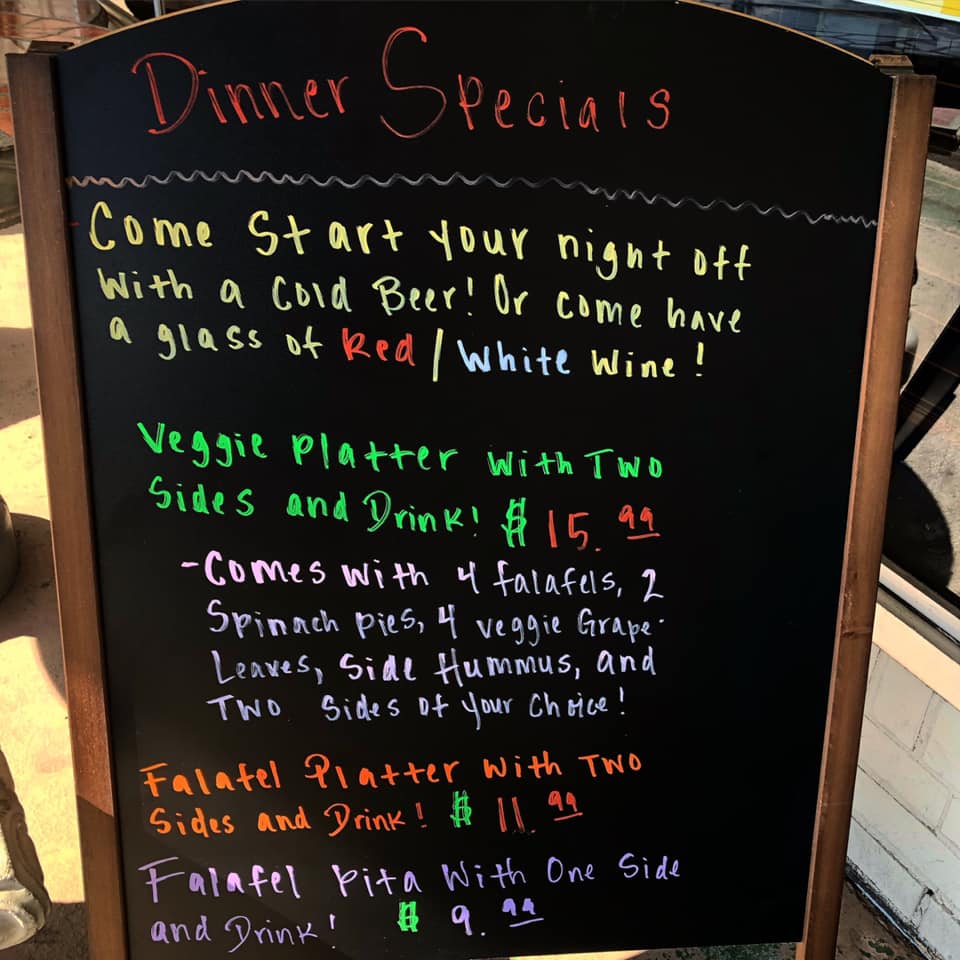 Dinner Specials
Come Start your night off
With a Cold Beer! Or come have
a glass of Red / White Wine!
Veggie Platter With Two
Sides and Drink! $ 15.99
-Comes With 4 falafels, 2
Spinach pies, 4 veggie Grape
Leaves, Side Hummus, and
Two Sides of your Choice!
Falafel Platter With Two
Sides and Drink! $ 11.99
Falafel Pita With One Side
and Drink! $ 9.99